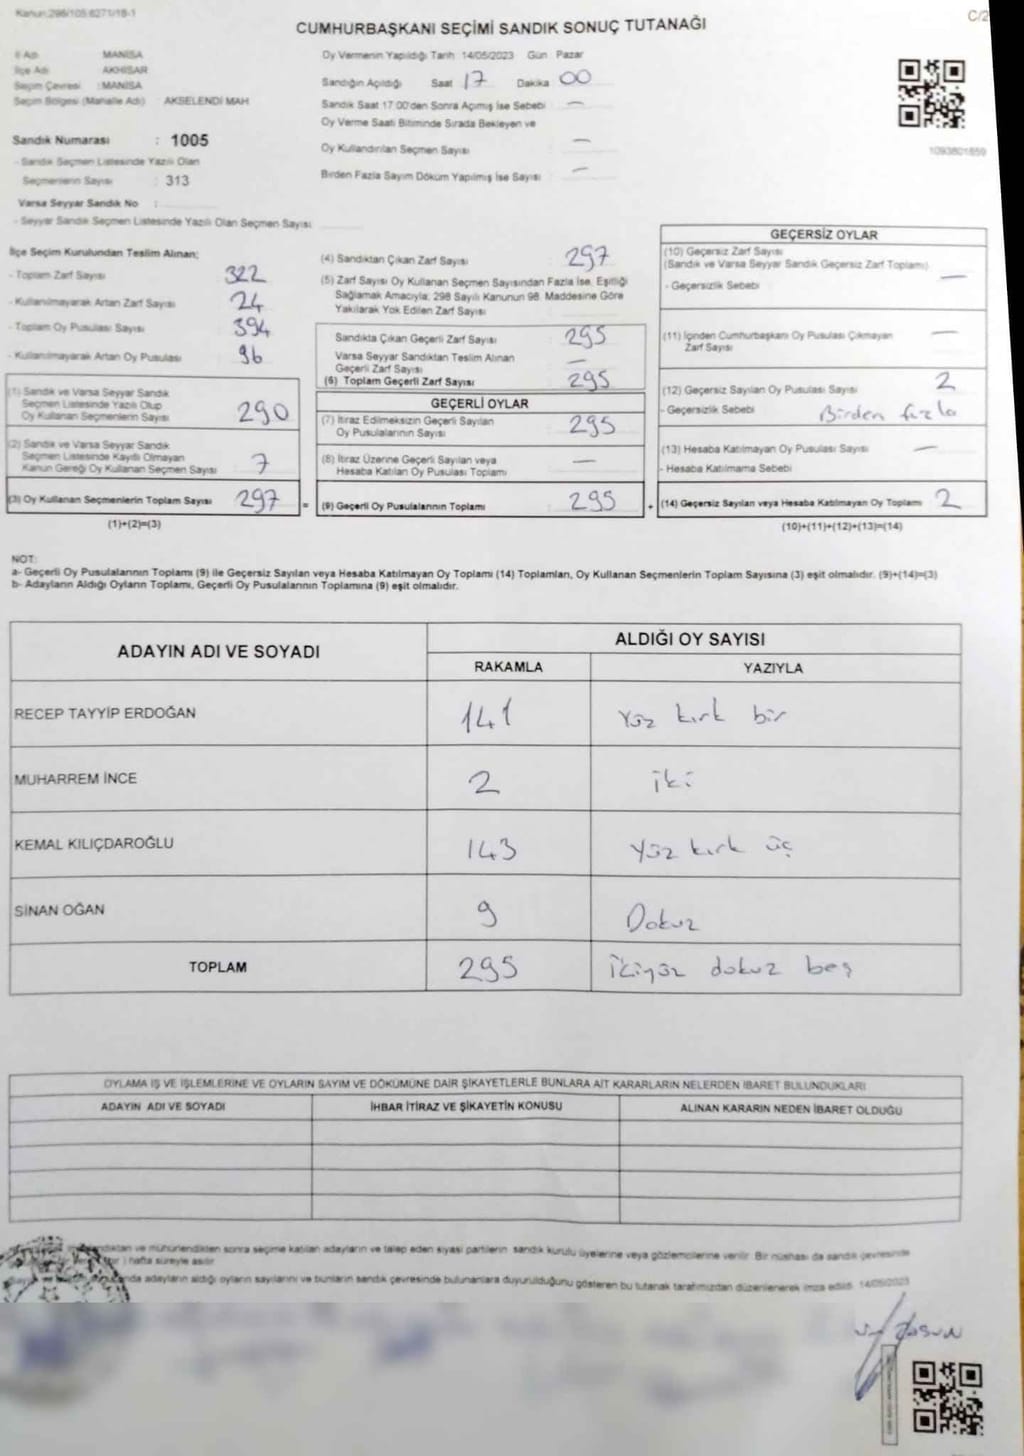 Kanun:298/105,6271/18-1
C/2
CUMHURBAŞKANI SEÇİMİ SANDIK SONUÇ TUTANAĞI
İl Adı MANİSA
İlçe Adı AKHİSAR
Seçim Çevresi : MANİSA
Seçim Bölgesi (Mahalle Adı) AKSELENDİ MAH
Sandık Numarası : 1005
- Sandık Seçmen Listesinde Yazılı Olan
Seçmenlerin Sayısı : 313
Varsa Seyyar Sandık No :
- Seyyar Sandık Seçmen Listesinde Yazılı Olan Seçmen Sayısı
Oy Vermenin Yapıldığı Tarih 14/05/2023 Gün Pazar
Sandığın Açıldığı Saat 17 Dakika 00
Sandık Saat 17.00'den Sonra Açımış İse Sebebi —
Oy Verme Saati Bitiminde Sırada Bekleyen ve
Oy Kullandırılan Seçmen Sayısı —
Birden Fazla Sayım Döküm Yapılmış İse Sayısı —
1093801659
İlçe Seçim Kurulundan Teslim Alınan;
- Toplam Zarf Sayısı 322
- Kullanılmayarak Artan Zarf Sayısı 24
- Toplam Oy Pusulası Sayısı 394
- Kullanılmayarak Artan Oy Pusulası 96
(1) Sandık ve Varsa Seyyar Sandık
Seçmen Listesinde Yazılı Olup
Oy Kullanan Seçmenlerin Sayısı 290
(2) Sandık ve Varsa Seyyar Sandık
Seçmen Listesinde Kayıtlı Olmayan
Kanun Gereği Oy Kullanan Seçmen Sayısı 7
(3) Oy Kullanan Seçmenlerin Toplam Sayısı 297 =
(1)+(2)=(3)
(4) Sandıktan Çıkan Zarf Sayısı 297
(5) Zarf Sayısı Oy Kullanan Seçmen Sayısından Fazla İse, Eşitliği
Sağlamak Amacıyla; 298 Sayılı Kanunun 98. Maddesine Göre
Yakılarak Yok Edilen Zarf Sayısı
Sandıkta Çıkan Geçerli Zarf Sayısı 295
Varsa Seyyar Sandıktan Teslim Alınan
Geçerli Zarf Sayısı —
(6) Toplam Geçerli Zarf Sayısı 295
GEÇERLİ OYLAR
(7) İtiraz Edilmeksizin Geçerli Sayılan
Oy Pusulalarının Sayısı 295
(8) İtiraz Üzerine Geçerli Sayılan veya
Hesaba Katılan Oy Pusulası Toplamı —
(9) Geçerli Oy Pusulalarının Toplamı 295 +
GEÇERSİZ OYLAR
(10) Geçersiz Zarf Sayısı
(Sandık ve Varsa Seyyar Sandık Geçersiz Zarf Toplamı) —
- Geçersizlik Sebebi
(11) İçinden Cumhurbaşkanı Oy Pusulası Çıkmayan —
Zarf Sayısı
(12) Geçersiz Sayılan Oy Pusulası Sayısı 2
- Geçersizlik Sebebi Birden fazla
(13) Hesaba Katılmayan Oy Pusulası Sayısı —
- Hesaba Katılmama Sebebi
(14) Geçersiz Sayılan veya Hesaba Katılmayan Oy Toplamı 2
(10)+(11)+(12)+(13)=(14)
NOT:
a- Geçerli Oy Pusulalarının Toplamı (9) ile Geçersiz Sayılan veya Hesaba Katılmayan Oy Toplamı (14) Toplamları, Oy Kullanan Seçmenlerin Toplam Sayısına (3) eşit olmalıdır. (9)+(14)=(3)
b- Adayların Aldığı Oyların Toplamı, Geçerli Oy Pusulalarının Toplamına (9) eşit olmalıdır.
ADAYIN ADI VE SOYADI
ALDIĞI OY SAYISI
RAKAMLA YAZIYLA
RECEP TAYYİP ERDOĞAN 141 Yüz kırk bir
MUHARREM İNCE 2 iki
KEMAL KILIÇDAROĞLU 143 Yüz kırk üç
SİNAN OĞAN 9 Dokuz
TOPLAM 295 İkiyüz dokuz beş
OYLAMA İŞ VE İŞLEMLERİNE VE OYLARIN SAYIM VE DÖKÜMÜNE DAİR ŞİKAYETLERLE BUNLARA AİT KARARLARIN NELERDEN İBARET BULUNDUKLARI
ADAYIN ADI VE SOYADI İHBAR İTİRAZ VE ŞİKAYETİN KONUSU ALINAN KARARIN NEDEN İBARET OLDUĞU
ve mühürlendikten sonra seçime katılan adayların ve talep eden siyasi partilerin sandık kurulu üyelerine veya gözlemcilerine verilir. Bir nüshası da sandık çevresinde
) hafta süreyle asılır.
adayların aldığı oyların sayılarını ve bunların sandık çevresinde bulunanlara duyurulduğunu gösteren bu tutanak tarafımızdan düzenlenerek imza edildi. 14/05/2023